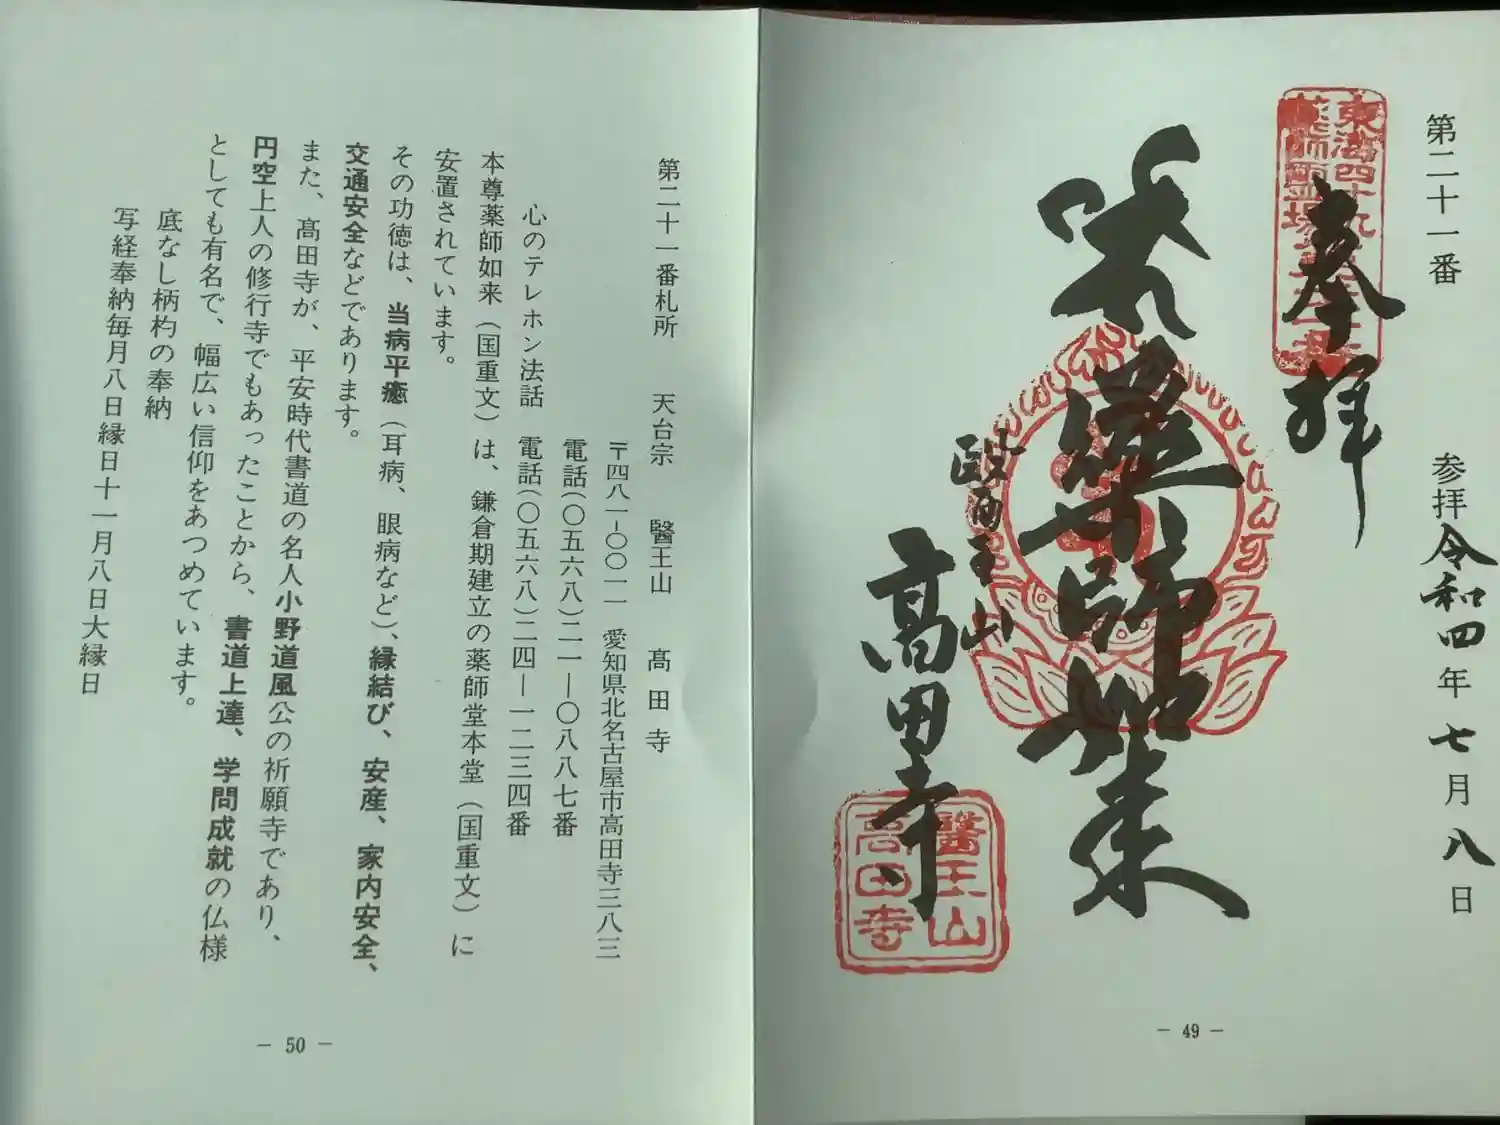 第二十一番
参拝令和四年七月八日
奉拝
薬師如来
醫王山
高田寺
醫王山
高田寺
－ 49 －
第二十一番札所　天台宗　醫王山　髙田寺
〒四八一-〇〇一一　愛知県北名古屋市高田寺三八三
電話(〇五六八)二一―〇八八七番
心のテレホン法話　電話(〇五六八)二四―一二三四番
本尊薬師如来（国重文）は、鎌倉期建立の薬師堂本堂（国重文）に
安置されています。
その功徳は、当病平癒（耳病、眼病など）、縁結び、安産、家内安全、
交通安全などであります。
また、髙田寺が、平安時代書道の名人小野道風公の祈願寺であり、
円空上人の修行寺でもあったことから、書道上達、学問成就の仏様
としても有名で、幅広い信仰をあつめています。
底なし柄杓の奉納
写経奉納毎月八日縁日十一月八日大縁日
－ 50 －